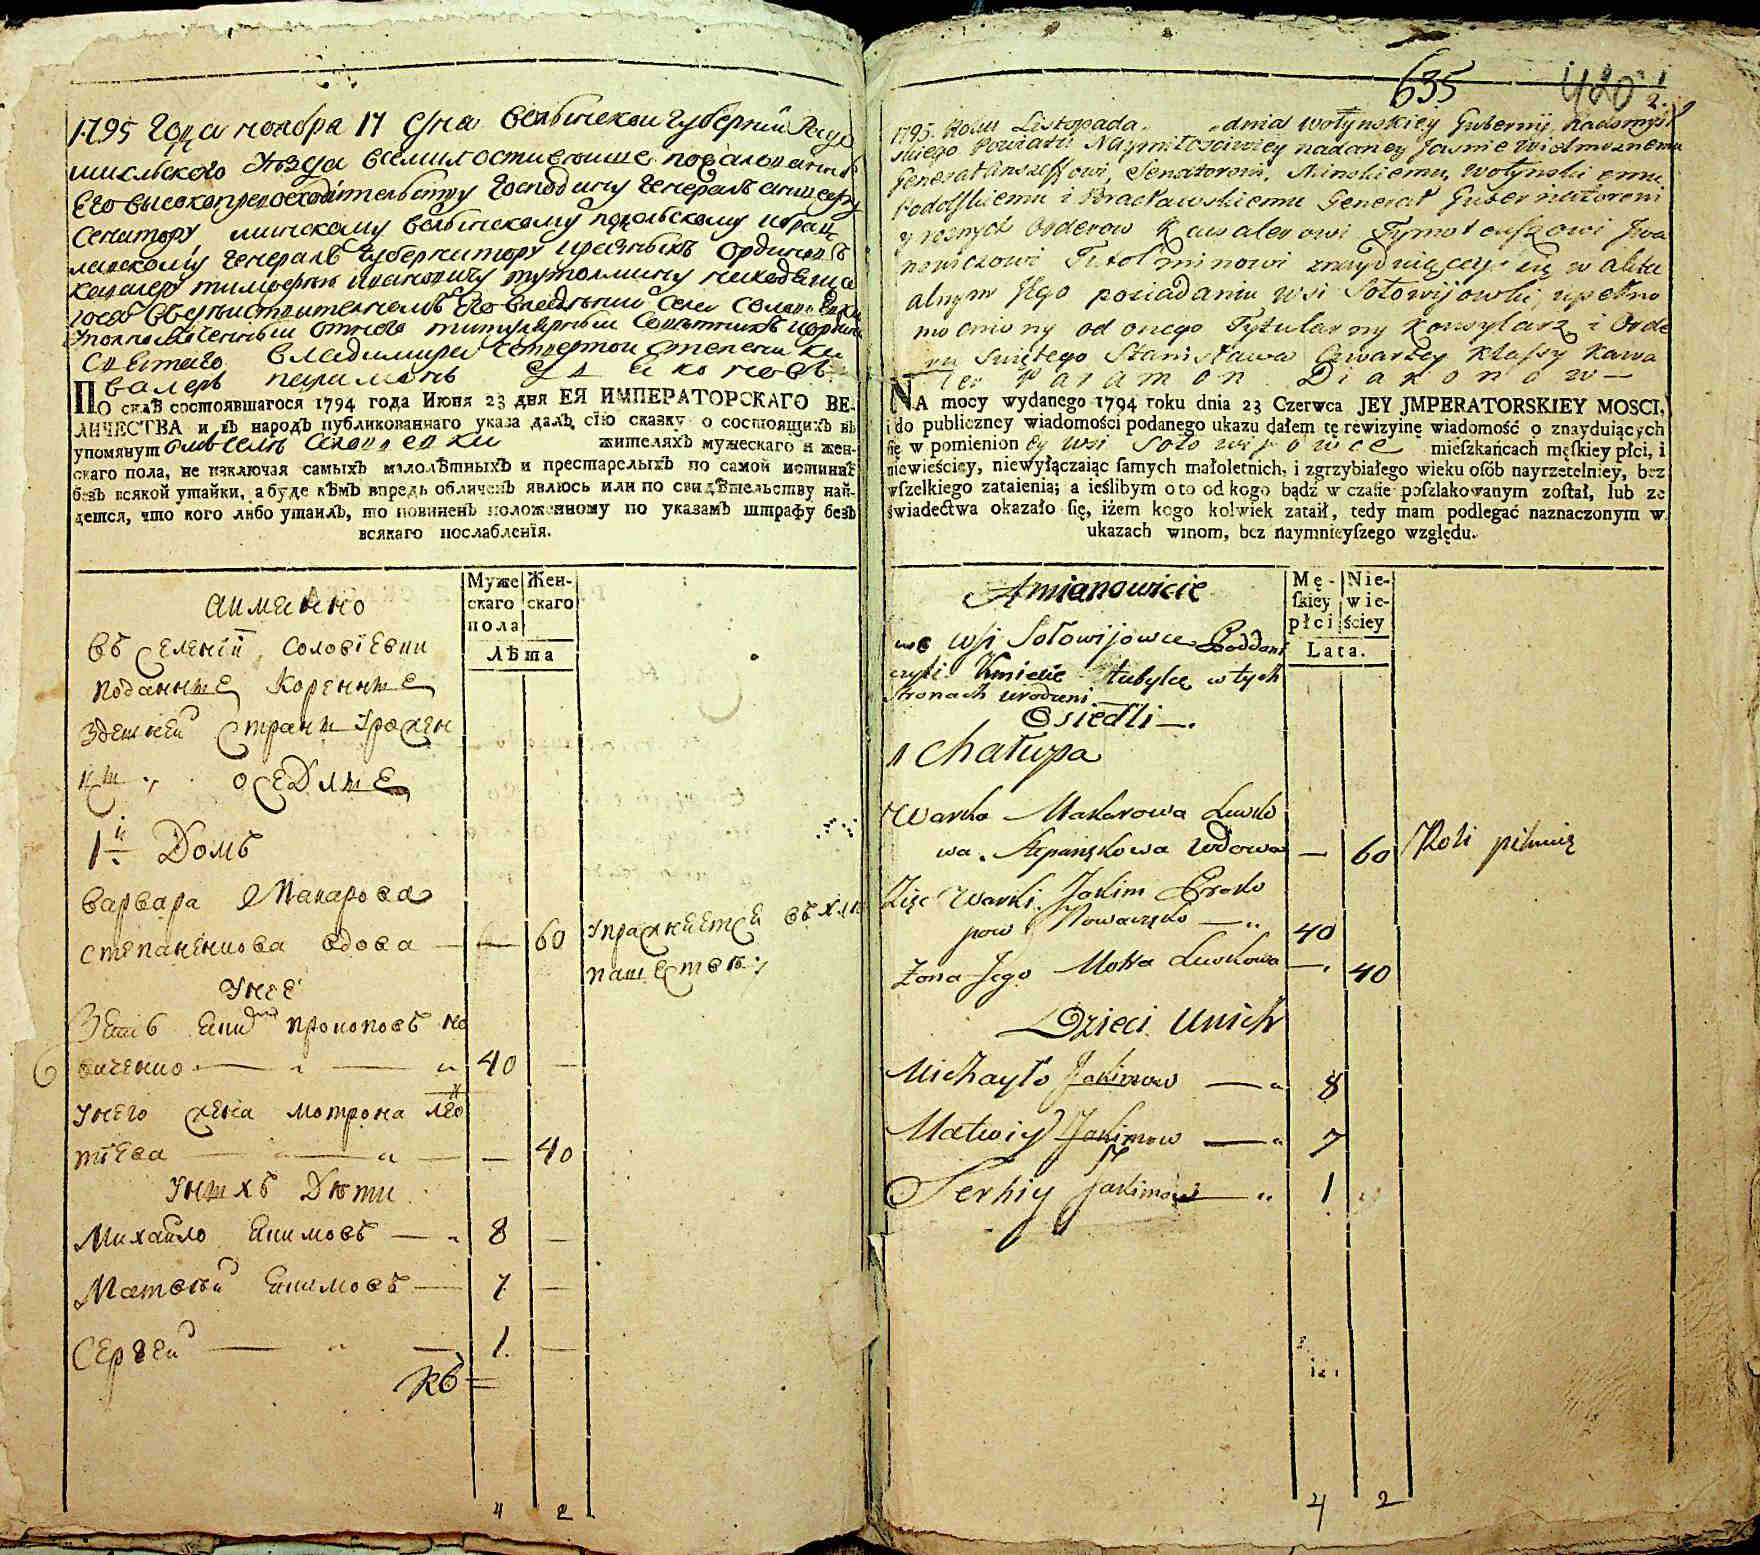 1795 года ноября 17 дня волынской губернии Радо
мисльского уезда всемилостивейше пожалованной
Его высокопревосходительству господину генералъ аншефу
сенатору минскому волынскому подольскому и брац
лавскому генералъ губернатору и разныхъ орденовъ
кавалеру тимофею ивановичу тутолмину
уполномоченный отнего титулярный советникъ и ордена
святаго владимира четвертой степени ка
валеръ парамонъ дьяконовъ
ПО силѣ состоявшагося 1794 года Июня 23 дня ЕЯ ИМПЕРАТОРСКАГО ВЕ-
ЛИЧЕСТВА и въ народъ публикованнаго указа далъ сію сказку о состоящихъ въ
упомянутомъ селѣ жителяхъ мужескаго и жен-
скаго пола, не изключая самыхъ малолѣтныхъ и престарелыхъ по самой истиннѣ
безъ всякой утайки, а буде кѣмъ впредь обличенъ явлюсь или по свидѣтельству най-
дется, что кого либо утаилъ, то повиненъ положенному по указамъ штрафу безъ
всякаго послабленія.
Муже Жен-
скаго скаго
пола
Лѣта
аименно
въ селеніи соловіевки
поданные коренные
здешней страни урожен
ны осѣдлые
1й Домъ
варвара Макарова
степаненкова вдова — 60 упражняется въ хле
пашествѣ
у нее
Зять Еким прокоповъ но
виченко 40 —
у него жена мотрона лео
нтіева — 40
у нихъ Дѣти
Михайло Екимовъ — 8 —
Матвѣй Екимовъ — 7 —
Сергей — 1 —
4 2
635 420
1795. Roku Listopada dnia wołynskiey Gubernij, Radomysl
skiego Powiatu Naymiłosciwiey nadaney Jasnie Wielmoznemu
Generał Anszeffowi, Senatorowi, Minskiemu, Wołynskiemu
Podolskiemu i Bracławskiemu Generał Gubernatorowi
y roznych Orderow Kawalerowi Tymoteuszowi Iwa
nowiczowi Tutolminowi znayduiącey się w aktu
alnym Jego posiadaniu wsi Sołowijowki, upełno
mocniony od onego Tytularny Konsylarz i Orde
ru Swiętego Stanisława Czwartey Klassy Kawa
ler Paramon Diakonow —
NA mocy wydanego 1794 roku dnia 23 Czerwca JEY JMPERATORSKIEY MOSCI,
i do publiczney wiadomości podanego ukazu dałem tę rewizyinę wiadomość o znayduiących
się w pomienioney wsi Sołowijowce mieszkańcach męſkiey płci, i
niewieściey, niewyłączaiąc ſamych małoletnich, i zgrzybiałego wieku osób nayrzetelniey, bez
wſzelkiego zataienia; a ieślibym o to od kogo bądź w czaſie poſzlakowanym został, lub ze
świadectwa okazało ſię, iżem kogo kolwiek zataił, tedy mam podlegać naznaczonym w
ukazach winom, bez naymnieyſzego względu.
Mę- Nie-
ſkiey wie-
płci ściey
Lata.
A mianowicie
we wsi Sołowijowce Poddani
czyli Kmiecie tubylcę w tych
stronach urodzeni.
Osiedli —.
1 Chałupa
Warka Makarowa Lewko
wa. Stepankowa Wdowa — 60 Roli pilnuię
Zięc Warki Jakim Proko
pow Nowaczęko — 40
Zona Jego Motra Lewkowa —. 40
Dzieci Unich
Michayło Jakimow — 8
Matwiy Jakimow — 7
Serhiy Jakimow — 1
4 2